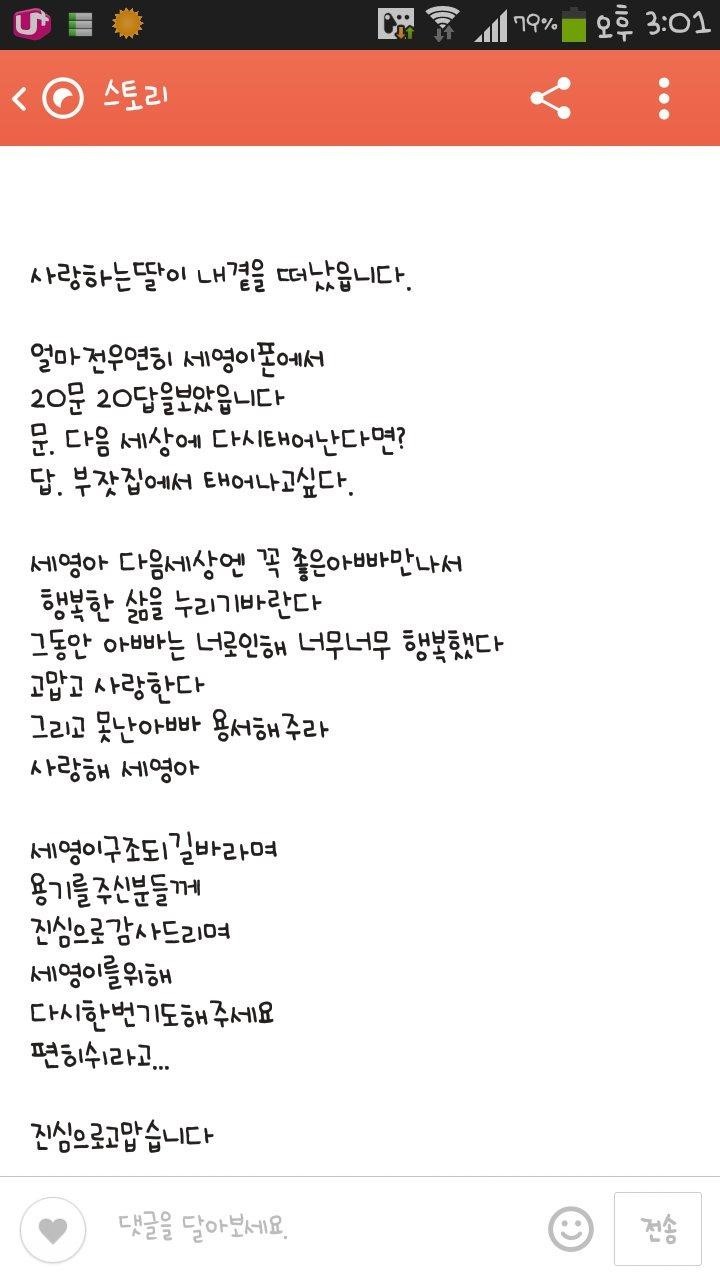 U+ 79% 오후 3:01
스토리
사랑하는딸이 내곁을 떠났읍니다.
얼마전우연히 세영이폰에서
20문 20답을보았읍니다
문. 다음 세상에 다시태어난다면?
답. 부잣집에서 태어나고싶다.
세영아 다음세상엔 꼭 좋은아빠만나서
행복한 삶을 누리기바란다
그동안 아빠는 너로인해 너무너무 행복했다
고맙고 사랑한다
그리고 못난아빠 용서해주라
사랑해 세영아
세영이구조되길바라며
용기를주신분들께
진심으로감사드리며
세영이를위해
다시한번기도해주세요
편히쉬라고...
진심으로고맙습니다
댓글을 달아보세요. 전송